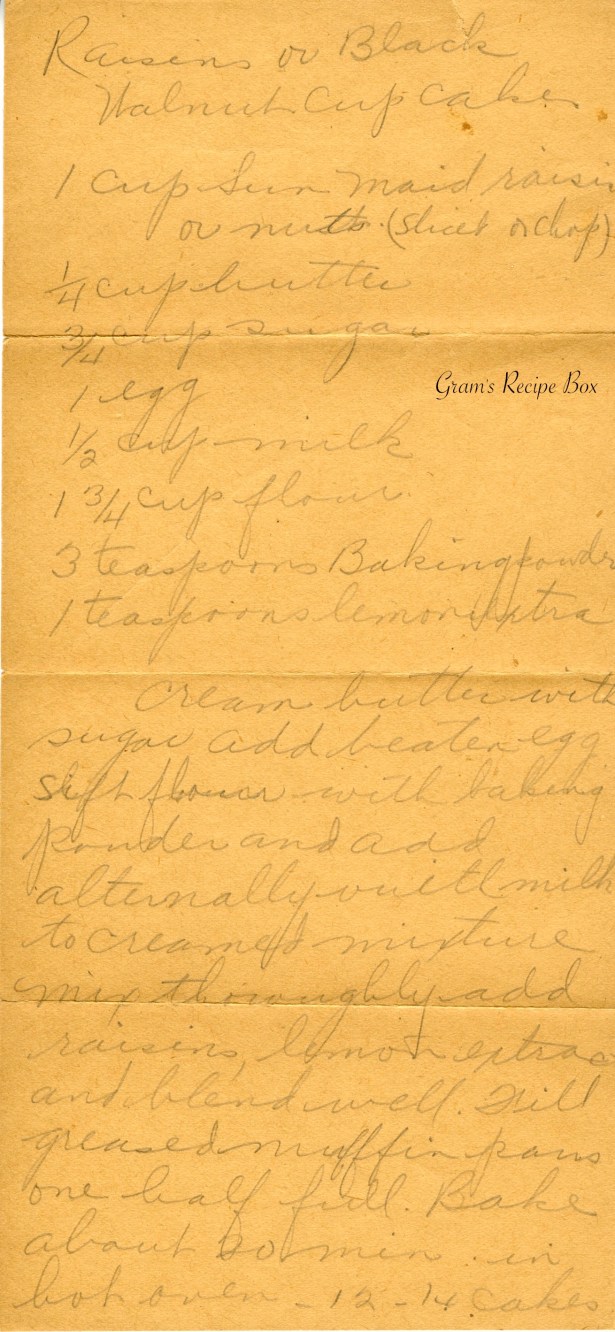 Raisins or Black
Walnut cup cakes
1 cup Sun maid raisi
or nuts. (slice or chop)
1/4 cup butter
3/4 cup sugar
1 egg
Gram's Recipe Box
1/2 cup milk
1 3/4 cup flour
3 teaspoons Baking powder
1 teaspoons lemon extra
cream butter with
sugar add beaten egg
sift flour with baking
powder and add
alternally with milk
to creamed mixture
mix thoroughly add
raisins, lemon extrac
and blend well. Fill
greased muffin pans
one half full. Bake
about 20 min. in
hot oven - 12 - 14 cakes